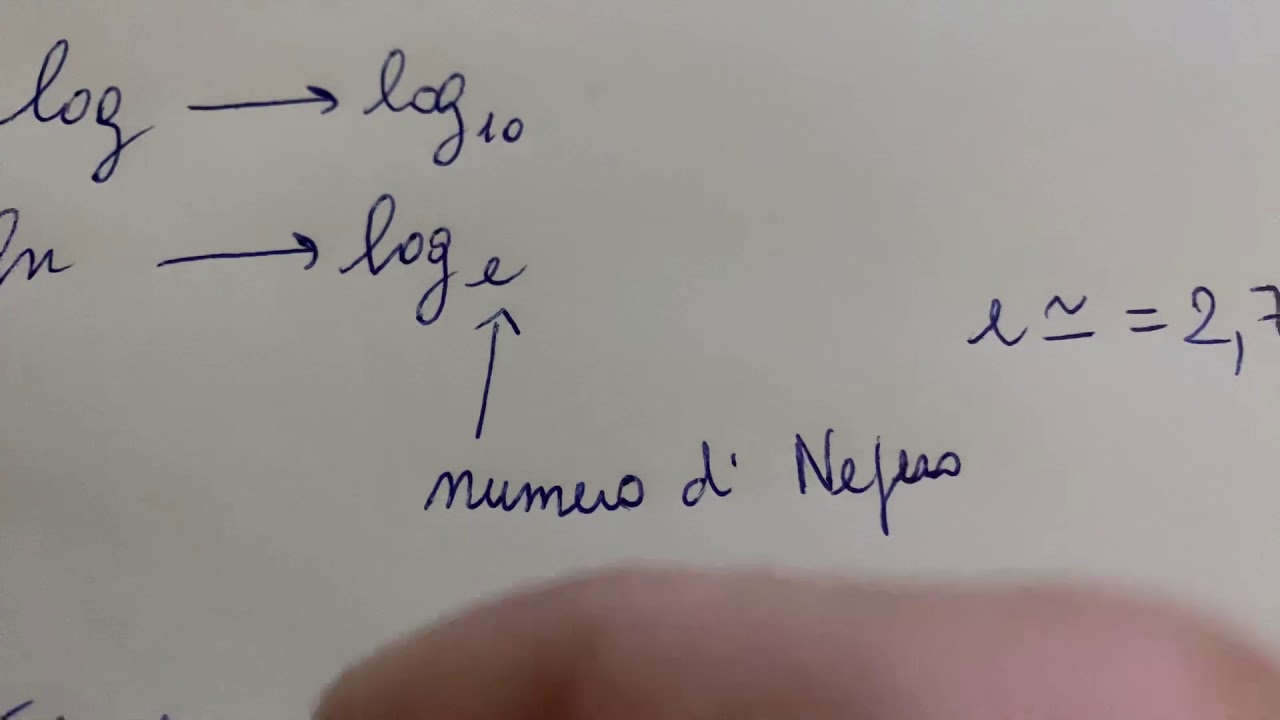 log → log₁₀
ln → logₑ
e ≃ = 2,7
↑
numero di Nepero